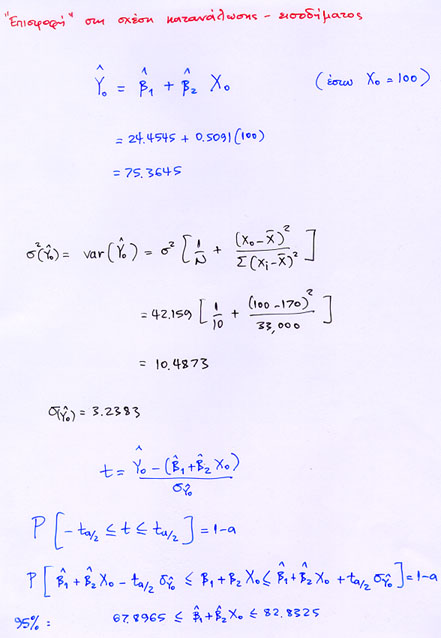 "Επιστροφή" στη σχέση κατανάλωσης - εισοδήματος
Ŷ₀ = β̂₁ + β̂₂ X₀ (έστω X₀ = 100)
= 24.4545 + 0.5091(100)
= 75.3645
σ²(Ŷ₀) = var(Ŷ₀) = σ² [ 1/N + (X₀ - X̄)² / Σ(Xᵢ - X̄)² ]
= 42.159 [ 1/10 + (100 - 170)² / 33,000 ]
= 10.4873
σ(Ŷ₀) = 3.2383
t = Ŷ₀ - (β̂₁ + β̂₂ X₀) / σŶ₀
P [ -tα/2 ≤ t ≤ tα/2 ] = 1-α
P [ β̂₁ + β̂₂ X₀ - tα/2 σŶ₀ ≤ β₁ + β₂ X₀ ≤ β̂₁ + β̂₂ X₀ + tα/2 σŶ₀ ] = 1-α
95% : 67.8965 ≤ β̂₁ + β̂₂ X₀ ≤ 82.8325